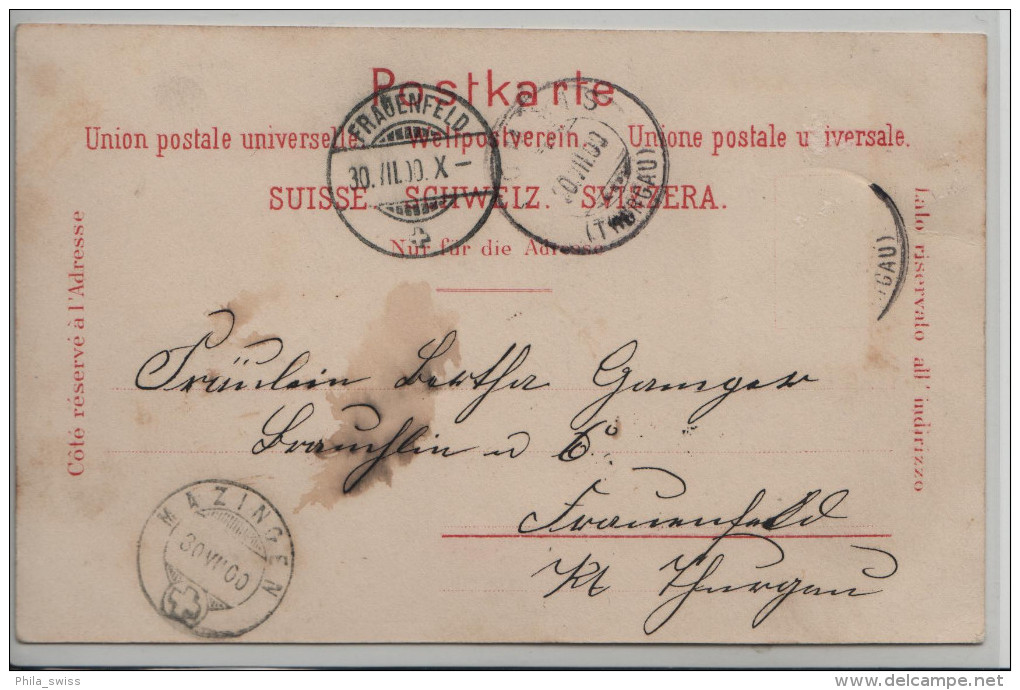 Postkarte
Union postale universelle. Weltpostverein. Unione postale universale.
SUISSE. SCHWEIZ. SVIZZERA.
Nur für die Adresse
Côté réservé à l'Adresse
Lato riservato all'indirizzo
FRAUENFELD
30.VII.00.X-
(THURGAU)
GAU)
Fräulein Bertha Gamper
Brauchlin u Co
Frauenfeld
Kt Thurgau
MAZINGEN
30 VII 00
Phila_swiss
delcampe.net